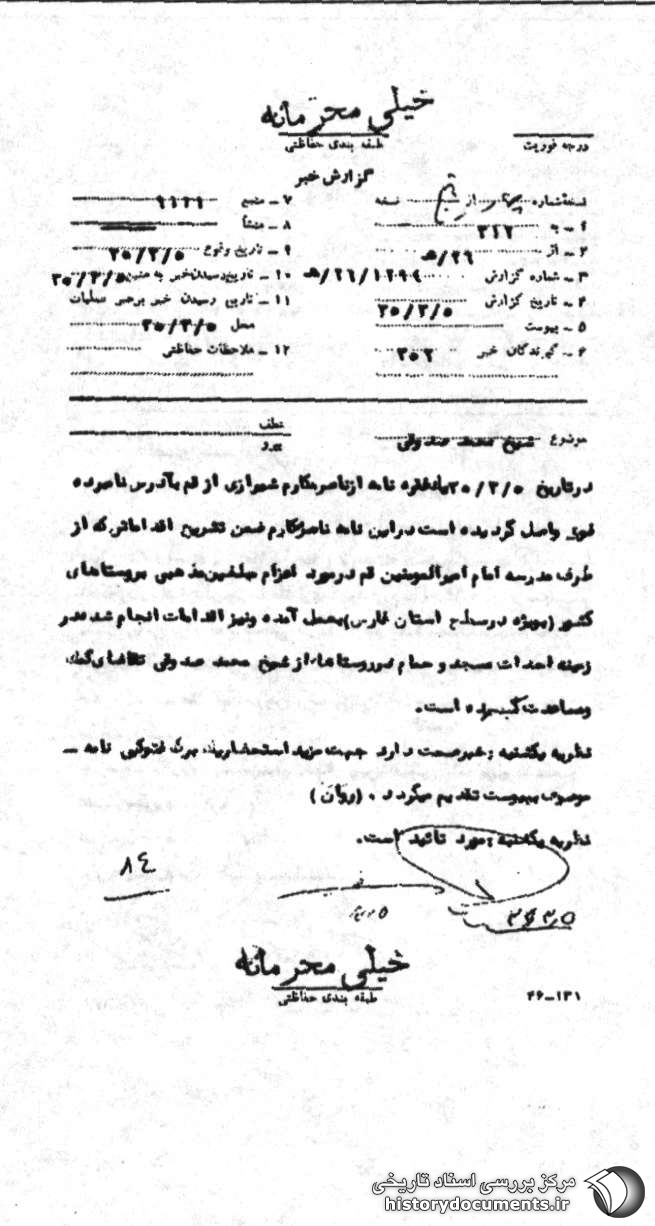 خیلی محرمانه
طبقه بندی حفاظتی
درجه فوریت
گزارش خبر
نسخه شماره از نسخه
۱ - به ۳۱۲
۲ - از ۲۶/ه
۳ - شماره گزارش ۲۶/۱۲۹۹/ه
۴ - تاریخ گزارش ۳۵/۳/۵
۵ - پیوست
۶ - گیرندگان خبر ۳۰۲
۷ - منبع ۹۱۴۹
۸ - منشأ
۹ - تاریخ وقوع ۳۵/۳/۵
۱۰ - تاریخ رسیدن خبر به منبع ۳۵/۳/۵
۱۱ - تاریخ رسیدن خبر برهبر عملیات
محل ۳۵/۳/۵
۱۲ - ملاحظات حفاظتی
موضوع شیخ محمد صدوقی
عطف
پیرو
درتاریخ ۳۵/۳/۵ یکفقره نامه ازناصرمکارم شیرازی از قم بآدرس نامبرده
فوق واصل گردیده است دراین نامه ناصرمکارم ضمن تشریح اقداماتی که از
طرف مدرسه امام امیرالمومنین قم درمورد اعزام مبلغین مذهبی بروستاهای
کشور (بویژه درسطح استان فارس) بعمل آمده ونیز اقدامات انجام شده در
زمینه احداث مسجد و حمام در روستاها، از شیخ محمد صدوقی تقاضای کمک
ومساعدت گردیده است.
نظریه یکشنبه : خبرصحت دارد جهت مزید استحضار برگ فتوکپی نامه -
موصوف بپیوست تقدیم میگردد . (روان)
نظریه یکشنبه : مورد تائید است.
۸۴
خیلی محرمانه
طبقه بندی حفاظتی
۴۶-۱۳۱
مرکز بررسی اسناد تاریخی
historydocuments.ir